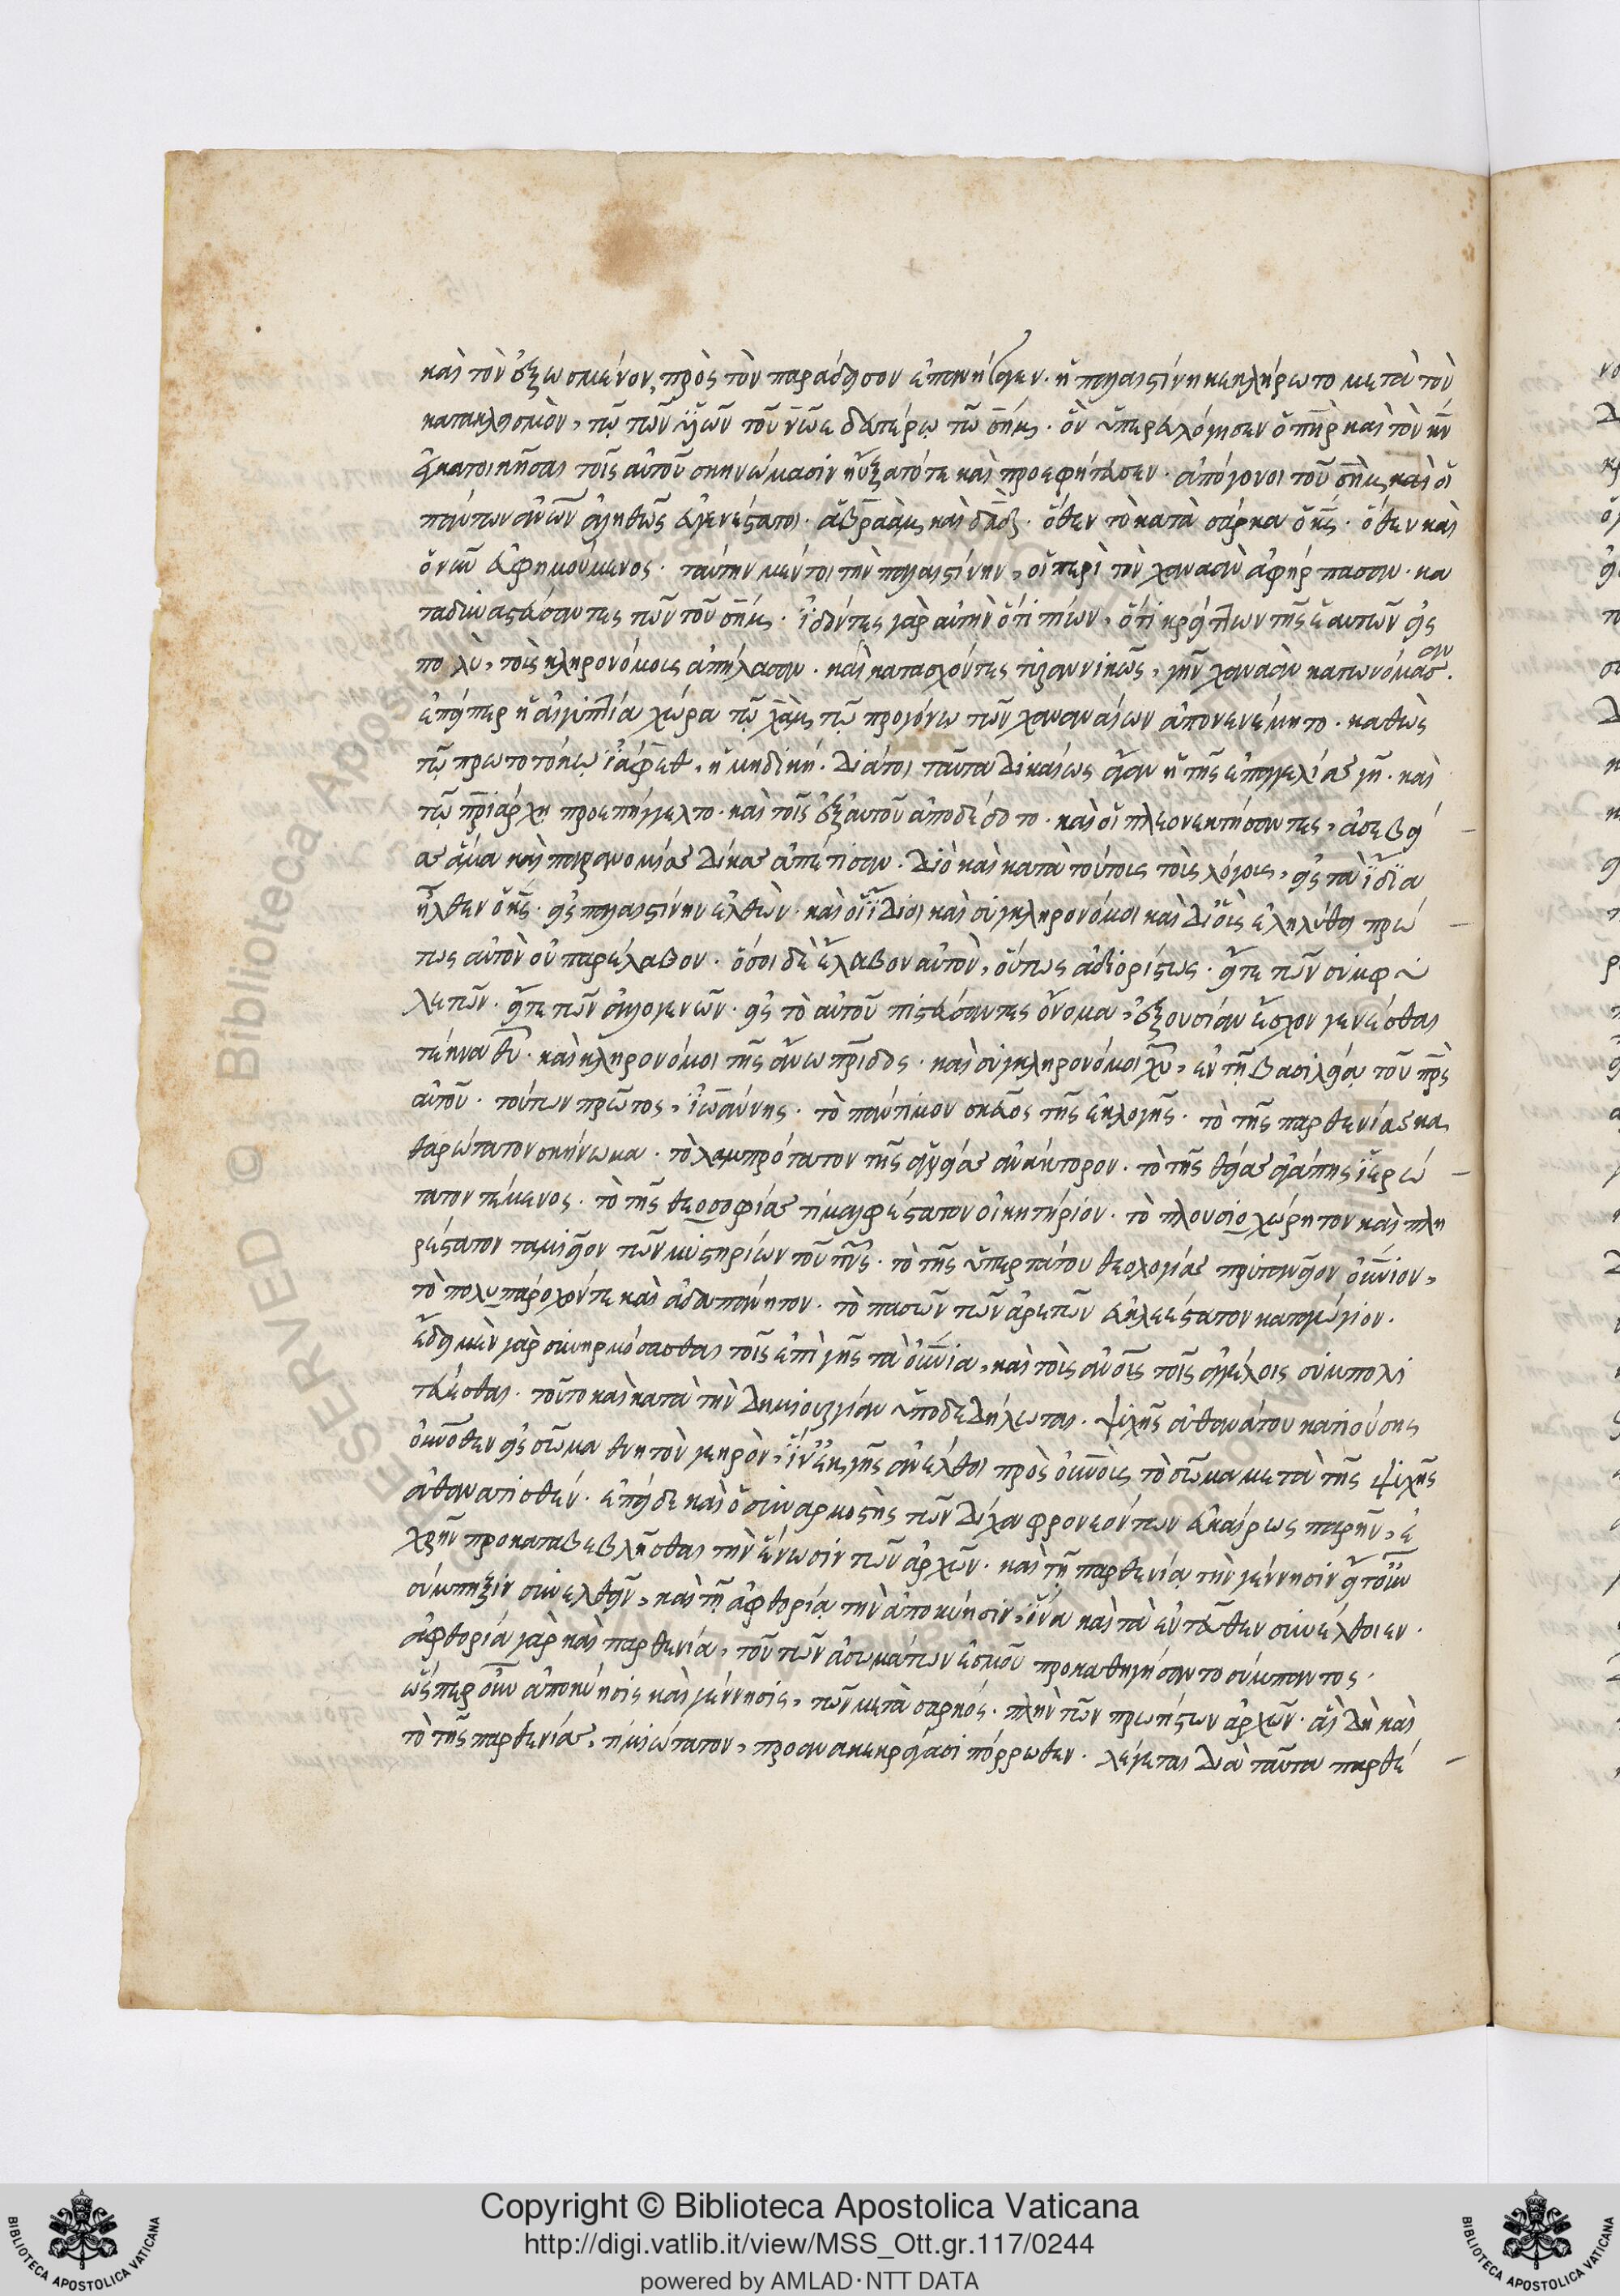 καὶ τὸν ἐξεωσμένον, πρὸς τὸν παράδεισον ἐπανήγαγεν. ἡ παλαιστίνη κεκλήρωτο μετὰ τὸν
κατακλυσμὸν, τῷ τῶν ὑϊῶν τοῦ νῶε δευτέρῳ τῶ σὴμ. ὃν ὑπερευλόγησεν ὁ π̅η̅ρ καὶ τὸν κ̅ν
ἐγκατοικῆσαι τοῖς αὐτοῦ σκηνώμασιν ηὔξατό τε καὶ προεφήτευσεν. ἀπόγονοι τοῦ σὴμ, καὶ οἱ
πάντων α̅ν̅ω̅ν ἀληθῶς εὐγενέστατοι. ἀβραὰμ, καὶ δ̅α̅δ. ὅθεν τὸ κατὰ σάρκα ὁ κ̅ς. ὅθεν καὶ
ὁ νῦν εὐφημούμενος. ταύτην μέντοι τὴν παλαιστίνην, οἱ περὶ τὸν χαναὰν ἀφήρπασαν. κα
ταδυναστεύσαντες τῶν τοῦ σήμ. ἰδόντες γὰρ αὐτὴν ὅτι πίων, ὅτι κρείττων τῆς ἑαυτῶν εἰς
πολὺ, τοὺς κληρονόμους ἀπήλασαν. καὶ κατασχόντες τυραννικῶς, γῆν χαναὰν κατωνόμασαν.
ἐπείπερ ἡ αἰγυπτία χώρα τῷ χὰμ, τῷ προγόνω τῶν χαναναίων ἀπονενέμητο. καθὼς
τῷ πρωτοτόκῳ ἰάφεθ, ἡ μηδική. διάτοι ταῦτα δικαίως αὖ ἡ τῆς ἐπαγγελίας γῆ. καὶ
τῷ π̅ρ̅ιάρχῃ προεπήγγελτο. καὶ τοῖς ἐξ αὐτοῦ ἀποδέδοτο. καὶ οἱ πλεονεκτήσαντες, ἀσεβεί
ας ἅμα καὶ παρανομίας δίκας ἀπέτισαν. διὸ καὶ κατὰ τούτους τοὺς λόγους, εἰς τὰ ἴδια
ἦλθεν ὁ κ̅ς. εἰς παλαιστίνην ἐλθὼν. καὶ οἱ ἴδιοι καὶ συγκληρονόμοι καὶ δι' οὓς ἐληλύθει πρώ
τως αὐτὸν οὐ παρέλαβον. ὅσοι δὲ ἔλαβον αὐτὸν, οὕτως ἀδιορίστως. εἴτε τῶν συμφυ
λετῶν. εἴτε τῶν ἀλλογενῶν. εἰς τὸ αὐτοῦ πιστεύσαντες ὄνομα, ἐξουσίαν ἔσχον γενέσθαι
τέκνα θ̅υ. καὶ κληρονόμοι τῆς ἄνω π̅ρ̅ίδος. καὶ συγκληρονόμοι χ̅υ, ἐν τῇ βασιλείᾳ τοῦ π̅ρ̅ς
αὐτοῦ. τούτων πρῶτος, ἰω̅άννης. τὸ πάντιμον σκεῦος τῆς ἐκλογῆς. τὸ τῆς παρθενίας κα
θαρώτατον σκήνωμα. τὸ λαμπρότατον τῆς ἁγνείας ἀνάκτορον. τὸ τῆς θείας ἀγάπης ἱερώ
τατον τέμενος. τὸ τῆς θεοσοφίας τιμαλφέστατον οἰκητήριον. τὸ πλουσιοχώρητον καὶ πλη
ρέστατον ταμιεῖον τῶν μυστηρίων τοῦ π̅ν̅ς. τὸ τῆς ὑπερτάτου θεολογίας πρυτανεῖον οὐ̅ν̅ιον,
τὸ πολυπάροχόν τε καὶ ἀδαπάνητον. τὸ πασῶν τῶν ἀρετῶν εὐκλεέστατον καταγώγιον.
ἔδει μὲν γὰρ συνηρμόσασθαι τοῖς ἐπὶ γῆς τὰ οὐ̅ν̅ια, καὶ τοὺς α̅ν̅ους τοῖς ἀγγέλοις συμπολι
τεύεσθαι. τοῦτο καὶ κατὰ τὴν δημιουργίαν ὑποδεδήλωται. ψυχῆς ἀθανάτου κατιούσης
οὐ̅ν̅όθεν εἰς σῶμα θνητὸν γεηρὸν, ἵν' ἐκ γῆς ἀνέλθοι πρὸς οὐ̅ν̅οὺς τὸ σῶμα μετὰ τῆς ψυχῆς
ἀθανατισθέν. ἐπεὶ δὲ καὶ ὁ συναρμοστὴς τῶν δίχα φρονεόντων εὐκαίρως παρῆν, ἐ
χρῆν προκαταβεβλῆσθαι τὴν ἕνωσιν τῶν ἀρχῶν. καὶ τῇ παρθενίᾳ τὴν γέννησιν εἴτουν
σύμπηξιν συνελθεῖν, καὶ τῇ ἀφθορίᾳ τὴν ἀποκύησιν, ἵνα καὶ τὰ ἐντεῦθεν συνέλθοιεν.
ἀφθορία γὰρ καὶ παρθενία, τοῦ τῶν ἀσωμάτων ἑσμοῦ προκαθηγήσαντο σύμπαντος.
ὥσπερ οὖν ἀποκύησις καὶ γέννησις, τῶν μετὰ σαρκός. πλὴν τῶν πρωτίστων ἀρχῶν. αἳ δὴ καὶ
τὸ τῆς παρθενίας, τιμιώτατον, προανακεκράγασι πόρρωθεν. λέγεται διὰ ταῦτα παρθέ